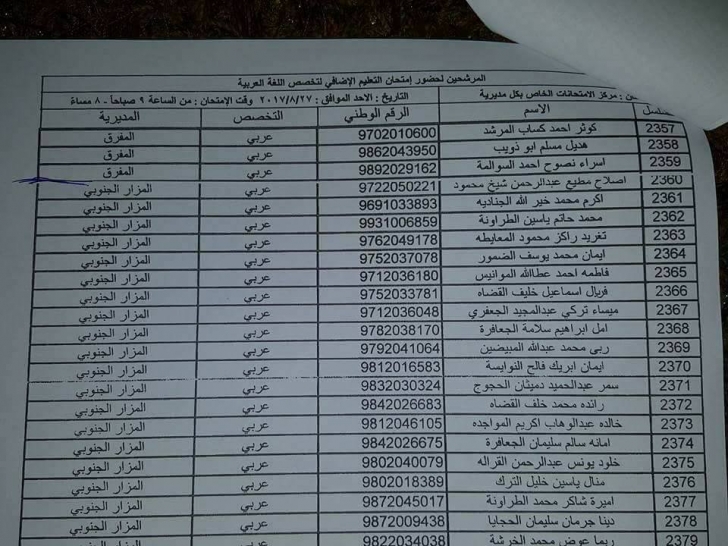 المرشحين لحضور إمتحان التعليم الإضافي لتخصص اللغة العربية
: مركز الامتحانات الخاص بكل مديرية التاريخ : الاحد الموافق : ٢٠١٧/٨/٢٧ وقت الإمتحان : من الساعة ٩ صباحاً - ٨ مساءً
الاسم الرقم الوطني التخصص المديرية
2357 كوثر احمد كساب المرشد 9702010600 عربي المفرق
2358 هديل مسلم ابو ذويب 9862043950 عربي المفرق
2359 اسراء نصوح احمد السوالمة 9892029162 عربي المفرق
2360 اصلاح مطيع عبدالرحمن شيخ محمود 9722050221 عربي المزار الجنوبي
2361 اكرم محمد خير الله الجناديه 9691033893 عربي المزار الجنوبي
2362 محمد حاتم ياسين الطراونة 9931006859 عربي المزار الجنوبي
2363 تغريد راكز محمود المعايطه 9762049178 عربي المزار الجنوبي
2364 ايمان محمد يوسف الضمور 9752037078 عربي المزار الجنوبي
2365 فاطمه احمد عطاالله الموانيس 9712036180 عربي المزار الجنوبي
2366 فريال اسماعيل خليف القضاه 9752033781 عربي المزار الجنوبي
2367 ميساء تركي عبدالمجيد الجعفري 9712036048 عربي المزار الجنوبي
2368 امل ابراهيم سلامة الجعافرة 9782038170 عربي المزار الجنوبي
2369 ربى محمد عبدالله المبيضين 9792041064 عربي المزار الجنوبي
2370 ايمان ابريك فالح النوايسة 9812016583 عربي المزار الجنوبي
2371 سمر عبدالحميد دميثان الحجوج 9832030324 عربي المزار الجنوبي
2372 رائده محمد خلف القضاه 9842026683 عربي المزار الجنوبي
2373 خالده عبدالوهاب اكريم المواجده 9812046105 عربي المزار الجنوبي
2374 امانه سالم سليمان الجعافرة 9842026675 عربي المزار الجنوبي
2375 خلود يونس عبدالرحمن القراله 9802040079 عربي المزار الجنوبي
2376 منال ياسين خليل الترك 9802018389 عربي المزار الجنوبي
2377 اميرة شاكر محمد الطراونة 9872045017 عربي المزار الجنوبي
2378 دينا جرمان سليمان الحجايا 9872009438 عربي المزار الجنوبي
2379 ريما عوض محمد الخرشة 9822034038 عربي المزار الجنوبي